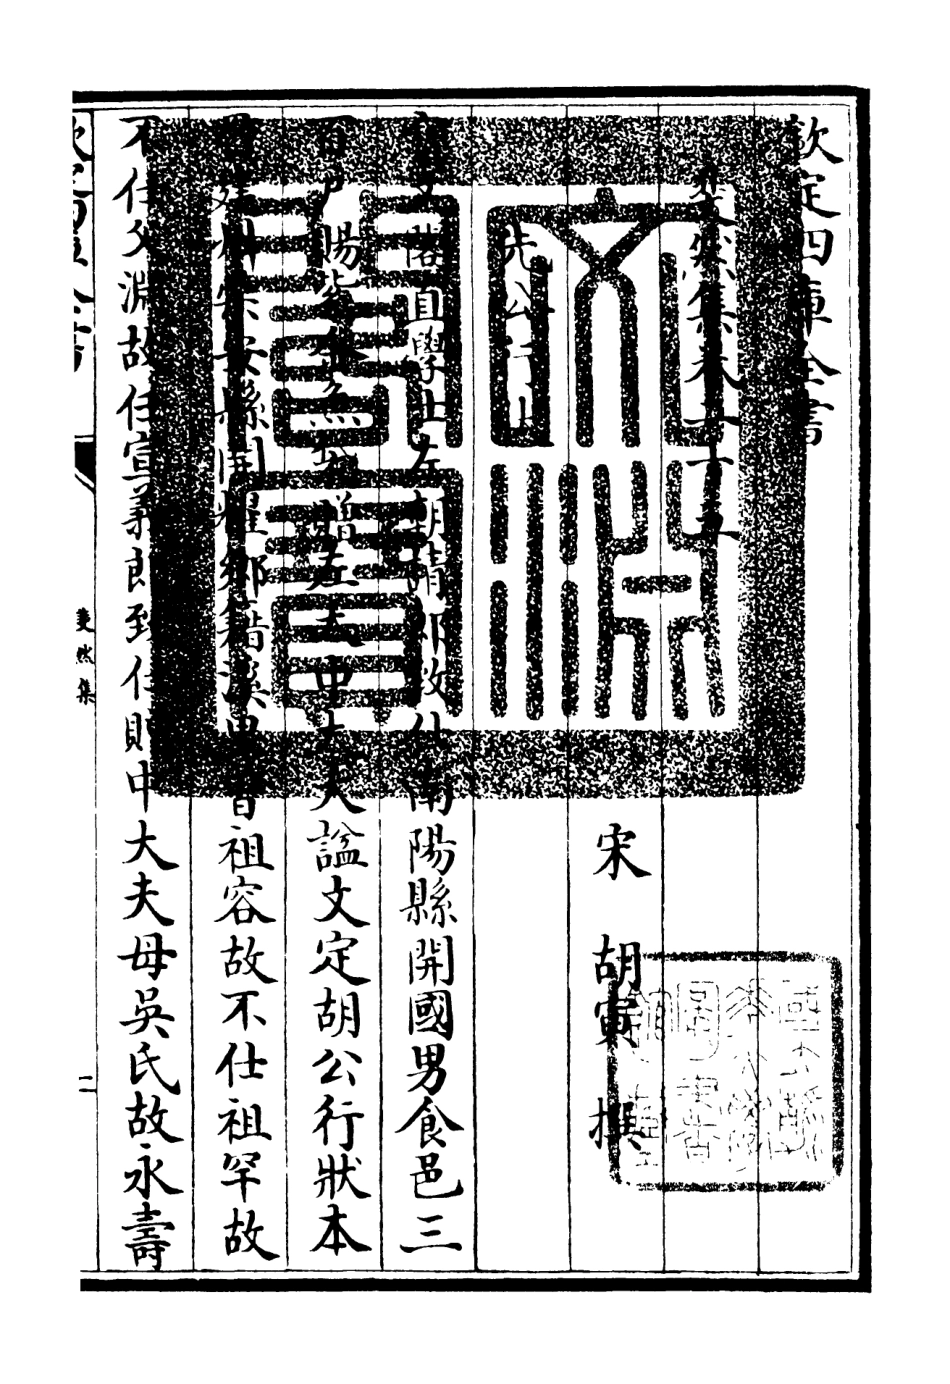 欽定四庫全書
斐然集卷二十五
宋 胡寅 撰
先公行狀
閣直學士左朝請郎致仕南陽縣開國男食邑三
百戶賜紫金魚袋贈左大中大夫諡文定胡公行狀本
貫建州崇安縣開耀鄉籍溪里曾祖容故不仕祖罕故
不仕父淵故任宣義郎致仕贈中大夫母吳氏故永壽
欽定四庫全書
斐然集
二